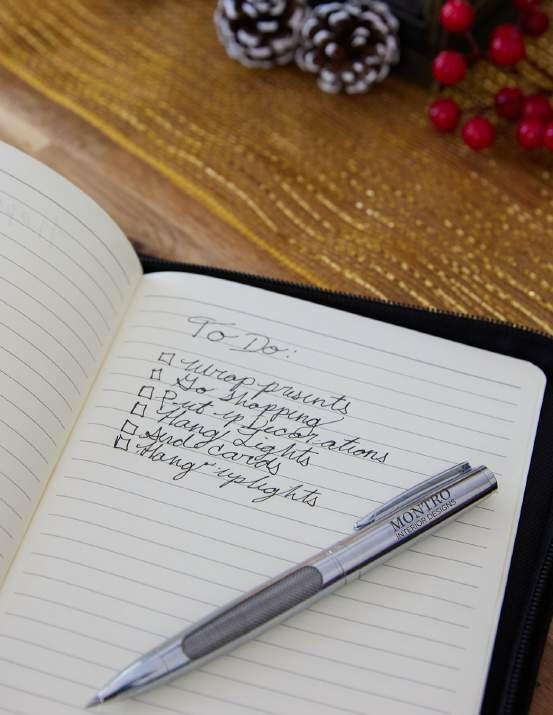 To Do:
□ Wrap presents
□ Go shopping
□ Put up Decorations
□ Hang Lights
□ Send cards
□ Hang up lights
MONTRO
INTERIOR DESIGNS